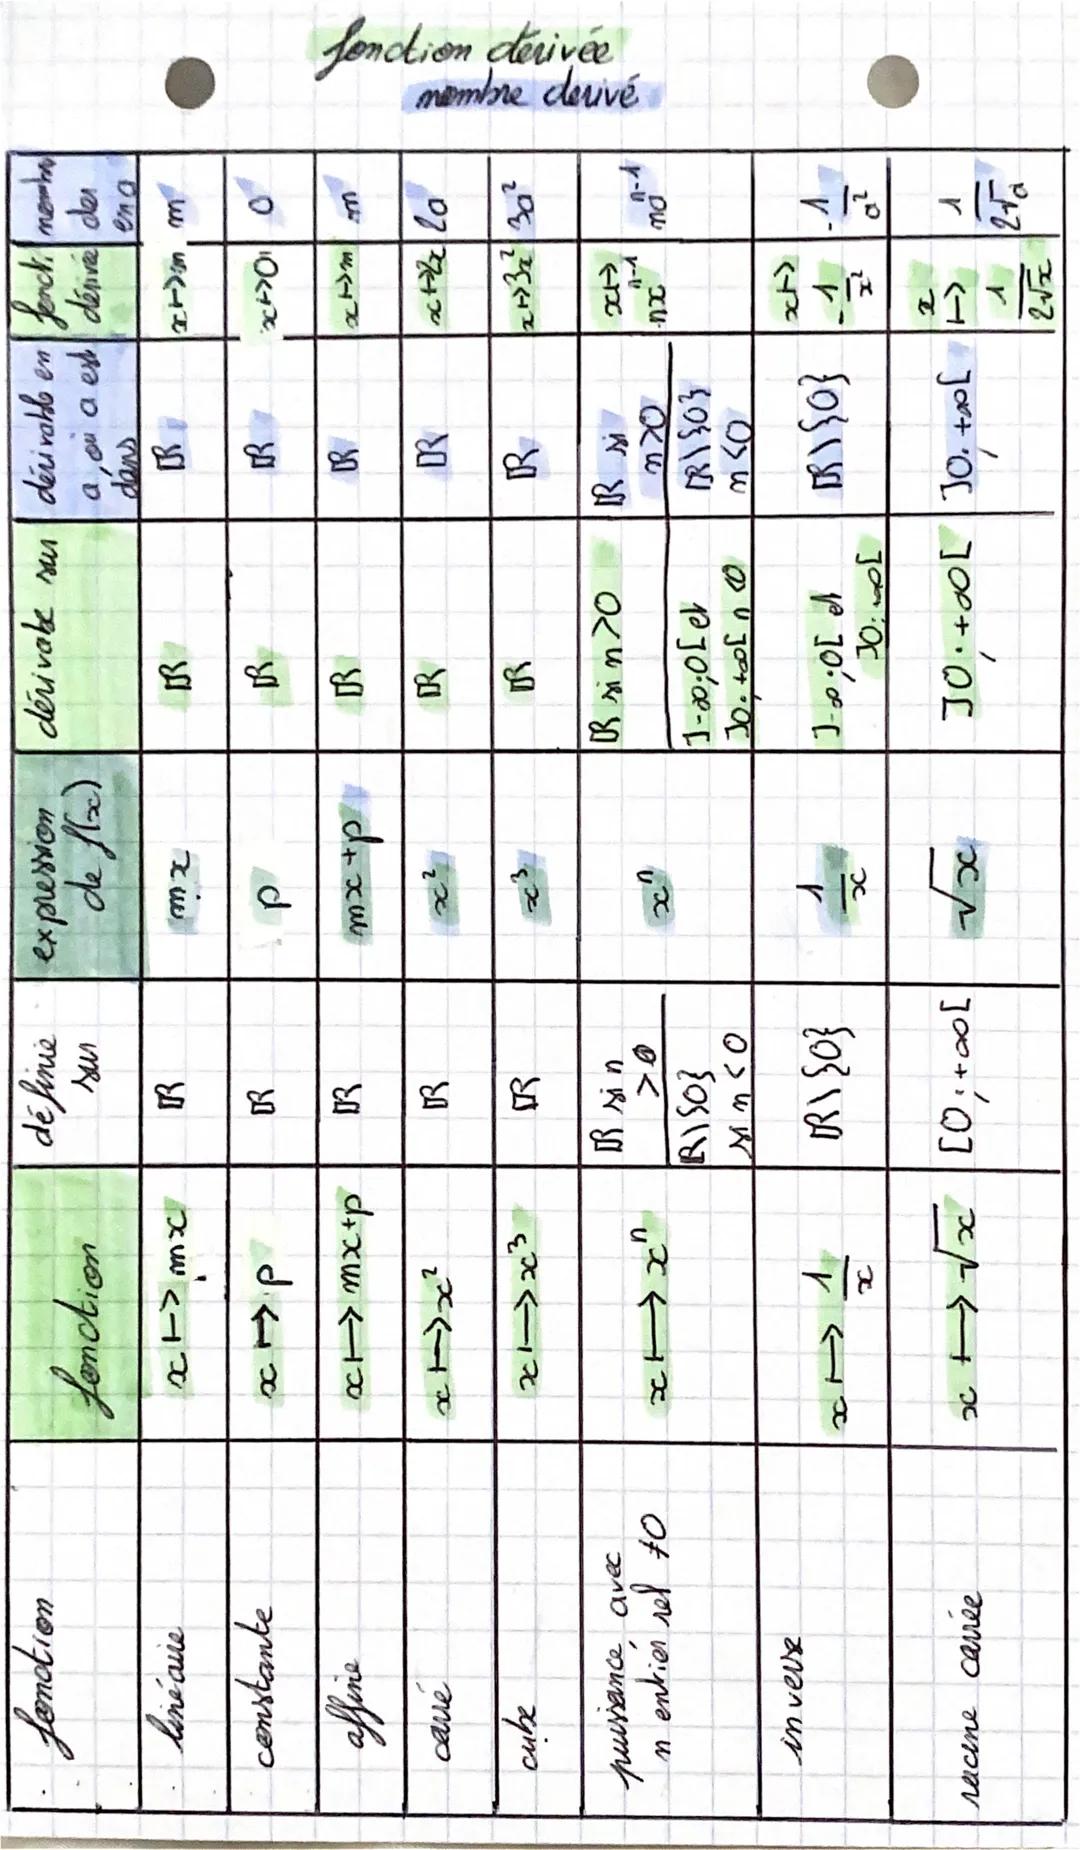 fonction dérivée
nombre derivé
fonction fonction définie sur expression de f(x) dérivable sur dérivable en a, où a est dans foncti dérivé nombre der en a
linéaire x ↦ mx ℝ mx ℝ ℝ x↦m m
constante x ↦ p ℝ p ℝ ℝ x↦0 0
affine x ↦ mx+p ℝ mx+p ℝ ℝ x↦m m
carré x ↦ x² ℝ x² ℝ ℝ x↦2x 2a
cube x ↦ x³ ℝ x³ ℝ ℝ x↦3x² 3a²
puissance avec n entier rel ≠0 x ↦ xⁿ ℝ si n >0 xⁿ ℝ si n >0 ℝ si n>0 x↦ nxⁿ⁻¹ naⁿ⁻¹
ℝ\{0} si n <0 ]-∞;0[ et ]0;+∞[ n <0 ℝ\{0} n <0
inverse x ↦ 1/x ℝ\{0} 1/x ]-∞;0[ et ]0;+∞[ ℝ\{0} x↦ -1/x² -1/a²
racine carrée x ↦ √x [0;+∞[ √x ]0;+∞[ ]0;+∞[ x ↦ 1/2√x 1/2√a